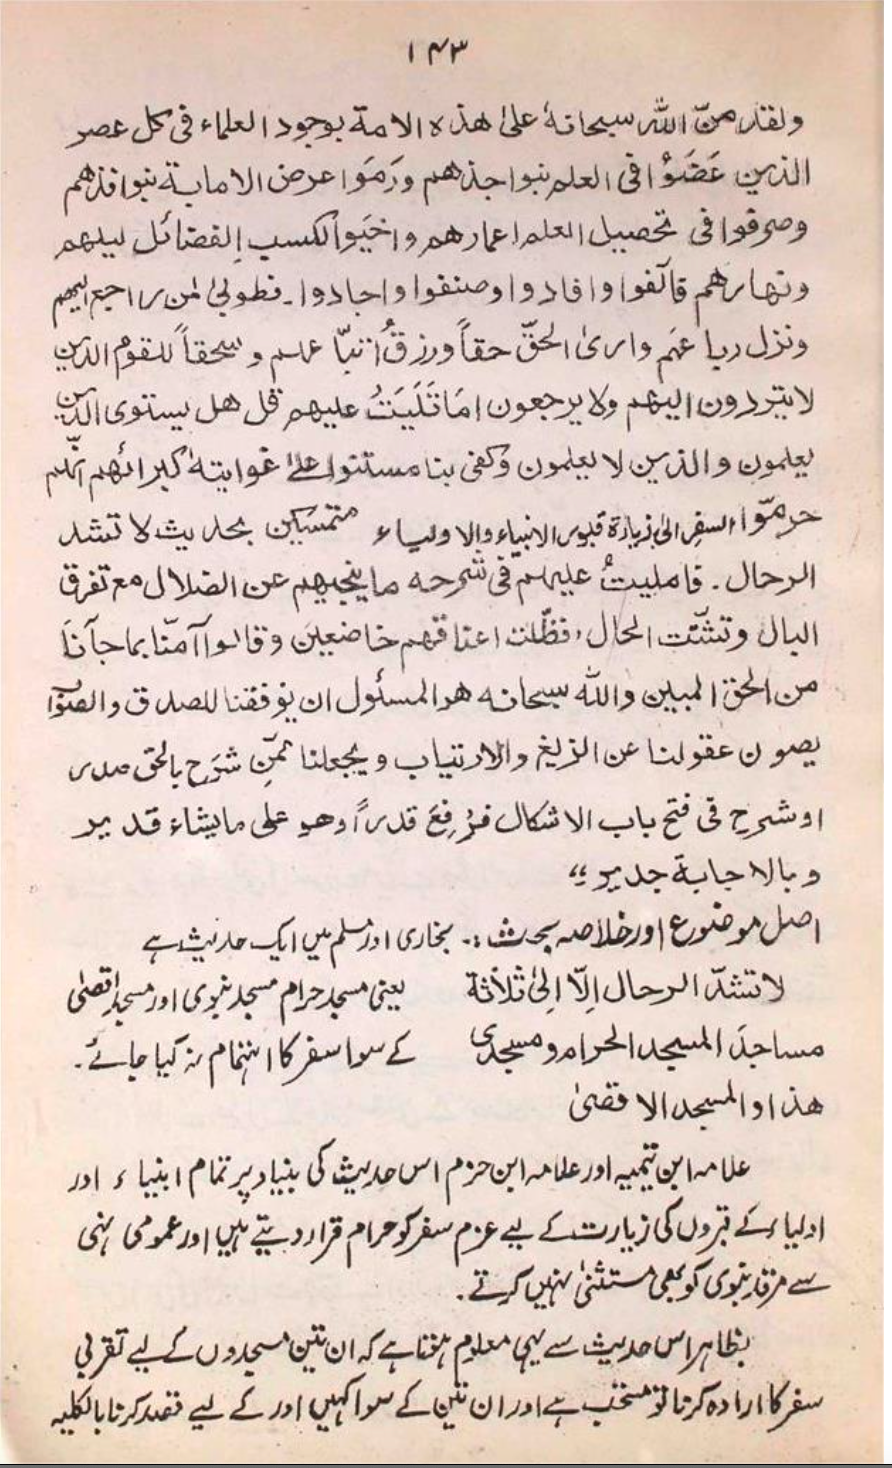 ۱۴۳
ولقد منّ اللہ سبحانہٗ علیٰ ھذہ الامۃ بوجود العلماء فی کل عصر
الذین عَضَوْا فی العلم بنواجذھم ورَمَوا عرض الامابۃ بنوافذھم
وصرفوا فی تحصیل العلم اعمارھم واخیَوا لکسب الفضائل لیلھم
ونھارھم فالّفوا وافادوا وصنفوا واجادوا۔ فطوبیٰ لمن راجع الیھم
ونزل ربا عھم واریٰ الحقّ حقاً ورزقُ اتباّ علم و سحقاً للقوم الذین
لا یتردون الیھم ولا یرجعون اِمَا تَلَیَتُ علیھم قل ھل یستوی الذین
یعلمون والذین لا یعلمون وکفی بنا مستنوا علیٰ غوایتہٖ کبرائھم انّھم
حرمّوا السفر الیٰ زیارۃ قبور الانبیاء والاولیاء متمسکین بحدیث لا تشد
الرحال۔ فاملیتُ علیھم فی شرحہ ما ینجیھم عن الضلال مع تفرق
البال وتشتّت الحال، فظّلت اعناقھم خاضعین وقالوا آمنّا بما جآنَا
من الحق المبین واللہ سبحانہ ھو المسئول ان یوفقنا للصدق والصوّاب
یصون عقولنا عن الزیغ والارتیاب ویجعلنا ممّن شرَح بالحق صدر
اوشرح فی فتح باب الاشکال فرُفِعَ قدراً وھو علی مایشاء قدیر
وبالاجابۃ جدیر“
اصل موضوع اور خلاصہ بحث :۔ بخاری اور مسلم میں ایک حدیث ہے
لا تشدّ الرحال اِلّا اِلیٰ ثلاثۃ یعنی مسجد حرام مسجد نبوی اور مسجد اقصیٰ
مساجدَ المسجد الحرام ومسجدی کے سوا سفر کا اہتمام نہ کیا جائے۔
ھذا والمسجد الاقصیٰ
علامہ ابن تیمیہ اور علامہ ابن حزم اس حدیث کی بنیاد پر تمام انبیاء اور
اولیاء کے قبروں کی زیارت کے لیے عزم سفر کو حرام قرار دیتے ہیں اور عمومی نہی
سے مرقد نبوی کو بھی مستثنیٰ نہیں کرتے۔
بظاہر اس حدیث سے یہی معلوم ہوتا ہے کہ ان تین مسجدوں کے لیے تقربی
سفر کا ارادہ کرنا تو مستحب ہے اور ان تین کے سوا کہیں اور کے لیے قصد کرنا بالکلیہ